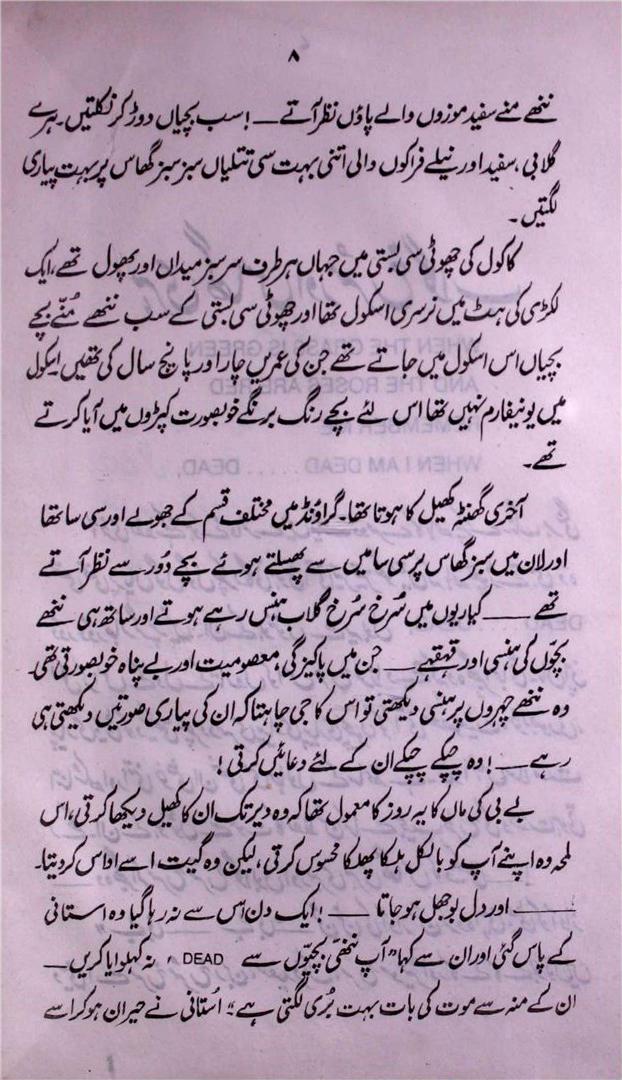 ۸
ننھے منے سفید موزوں والے پاؤں نظر آتے ــــ! سب بچیاں دوڑ کر نکلتیں۔ ہرے
گلابی، سفید اور نیلے فراکوں والی اتنی بہت سی تتلیاں سبز سبز گھاس پر بہت پیاری
لگتیں۔
کاکول کی چھوٹی سی بستی میں جہاں ہر طرف سرسبز میداں اور پھول تھے، ایک
لکڑی کی ہٹ میں نرسری اسکول تھا اور چھوٹی سی بستی کے سب ننھے مُنّے بچے
بچیاں اس اسکول میں جاتے تھے جن کی عمریں چار اور پانچ سال کی تھیں۔ اسکول
میں یونیفارم نہیں تھا اس لئے بچے رنگ برنگے خوبصورت کپڑوں میں آیا کرتے
تھے۔
آخری گھنٹہ کھیل کا ہوتا تھا۔ گراؤنڈ میں مختلف قسم کے جھولے اور سی سا تھا
اور لان میں سبز گھاس پر سی سا میں سے پھسلتے ہوئے بچے دُور سے نظر آتے
تھے ــــ کیاریوں میں سُرخ سُرخ گلاب ہنس رہے ہوتے اور ساتھ ہی ننھے
بچّوں کی ہنسی اور قہقہے ــــ جن میں پاکیزگی، معصومیت اور بے پناہ خوبصورتی تھی۔
وہ ننھے چہروں پر ہنسی دیکھتی تو اس کا جی چاہتا کہ ان کی پیاری صورتیں دیکھتی ہی
رہے ــــ! وہ چپکے چپکے ان کے لئے دعائیں کرتی!
بے بی کی ماں کا یہ روز کا معمول تھا کہ وہ دیر تک ان کا کھیل دیکھا کرتی، اس
لمحہ وہ اپنے آپ کو بالکل ہلکا پھلکا محسوس کرتی، لیکن وہ گیت اسے اداس کر دیتا۔
ــــ اور دل بوجھل ہو جاتا ــــ! ایک دن اس سے نہ رہا گیا وہ استانی
کے پاس گئی اور ان سے کہا "آپ ننھی بچیّوں سے DEAD ، نہ کہلوایا کریں ــــ
ان کے منہ سے موت کی بات بہت بُری لگتی ہے" اُستانی نے حیران ہو کر اسے